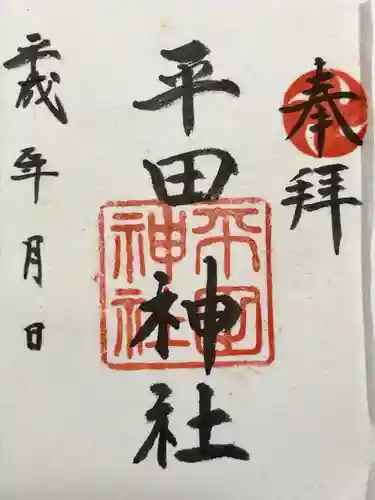 奉拝
平田神社
平田神社
平成 年 月 日